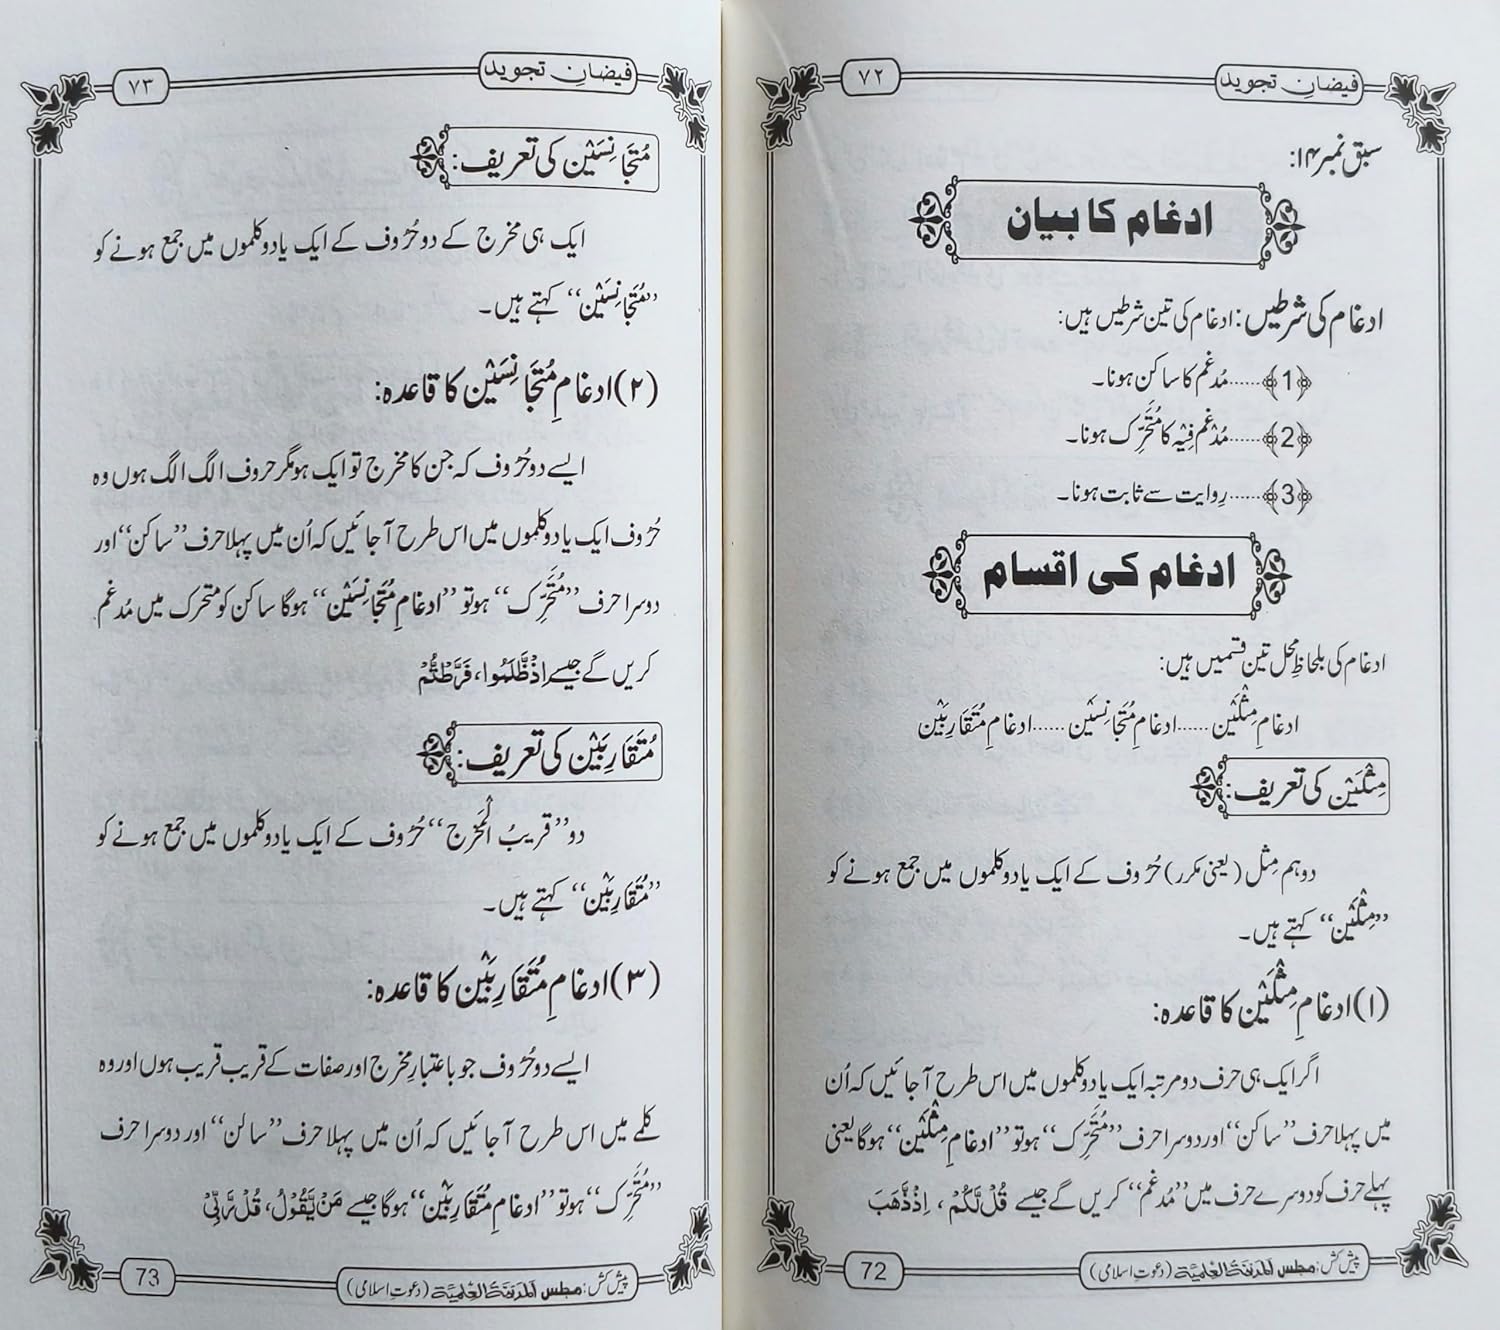 فیضانِ تجوید
۷۲
سبق نمبر ۱۴:
ادغام کا بیان
ادغام کی شرطیں: ادغام کی تین شرطیں ہیں:
﴿1﴾......مُدغَم کا ساکن ہونا۔
﴿2﴾......مُدْغَم فِیْہ کا مُتَحَرِّک ہونا۔
﴿3﴾......رِوایت سے ثابت ہونا۔
ادغام کی اقسام
ادغام کی بلحاظِ محل تین قسمیں ہیں:
ادغامِ مِثْلَیْن......ادغامِ مُتَجَانِسَیْن......ادغامِ مُتَقَارِبَیْن
مِثْلَیْن کی تعریف:
دو ہم مِثْل (یعنی مکرر) حُرُوف کے ایک یا دو کلموں میں جمع ہونے کو
”مِثْلَیْن“ کہتے ہیں۔
(۱) ادغامِ مِثْلَیْن کا قاعدہ:
اگر ایک ہی حرف دو مرتبہ ایک یا دو کلموں میں اس طرح آ جائیں کہ اُن
میں پہلا حرف ”ساکن“ اور دوسرا حرف ”مُتَحَرِّک“ ہو تو ”ادغامِ مِثْلَیْن“ ہو گا یعنی
پہلے حرف کو دوسرے حرف میں ”مُدغَم“ کریں گے جیسے قُلْ لَّکُمْ ، اِذْذَّھَبَ
پیش کش: مجلس المدینۃ العلمیۃ (دعوتِ اسلامی)
72
فیضانِ تجوید
۷۳
مُتَجَانِسَیْن کی تعریف:
ایک ہی مخرج کے دو حُرُوف کے ایک یا دو کلموں میں جمع ہونے کو
”مُتَجَانِسَیْن“ کہتے ہیں۔
(۲) ادغامِ مُتَجَانِسَیْن کا قاعدہ:
ایسے دو حُرُوف کہ جن کا مخرج تو ایک ہو مگر حروف الگ الگ ہوں وہ
حُرُوف ایک یا دو کلموں میں اس طرح آ جائیں کہ اُن میں پہلا حرف ”ساکن“ اور
دوسرا حرف ”مُتَحَرِّک“ ہو تو ”ادغامِ مُتَجَانِسَیْن“ ہو گا ساکن کو متحرک میں مُدغَم
کریں گے جیسے اِذْظَّلَمُوا، فَرَّطْتُّمْ
مُتَقَارِبَیْن کی تعریف:
دو ”قریبُ الْمَخرج“ حُرُوف کے ایک یا دو کلموں میں جمع ہونے کو
”مُتَقَارِبَیْن“ کہتے ہیں۔
(۳) ادغامِ مُتَقَارِبَیْن کا قاعدہ:
ایسے دو حُرُوف جو باعتبارِ مخرج اور صفات کے قریب قریب ہوں اور وہ
کلمے میں اس طرح آ جائیں کہ اُن میں پہلا حرف ”ساکن“ اور دوسرا حرف
”مُتَحَرِّک“ ہو تو ”ادغامِ مُتَقَارِبَیْن“ ہو گا جیسے مَنْ یَّقُوْلُ، قُلْ رَّبِّیْ
پیش کش: مجلس المدینۃ العلمیۃ (دعوتِ اسلامی)
73